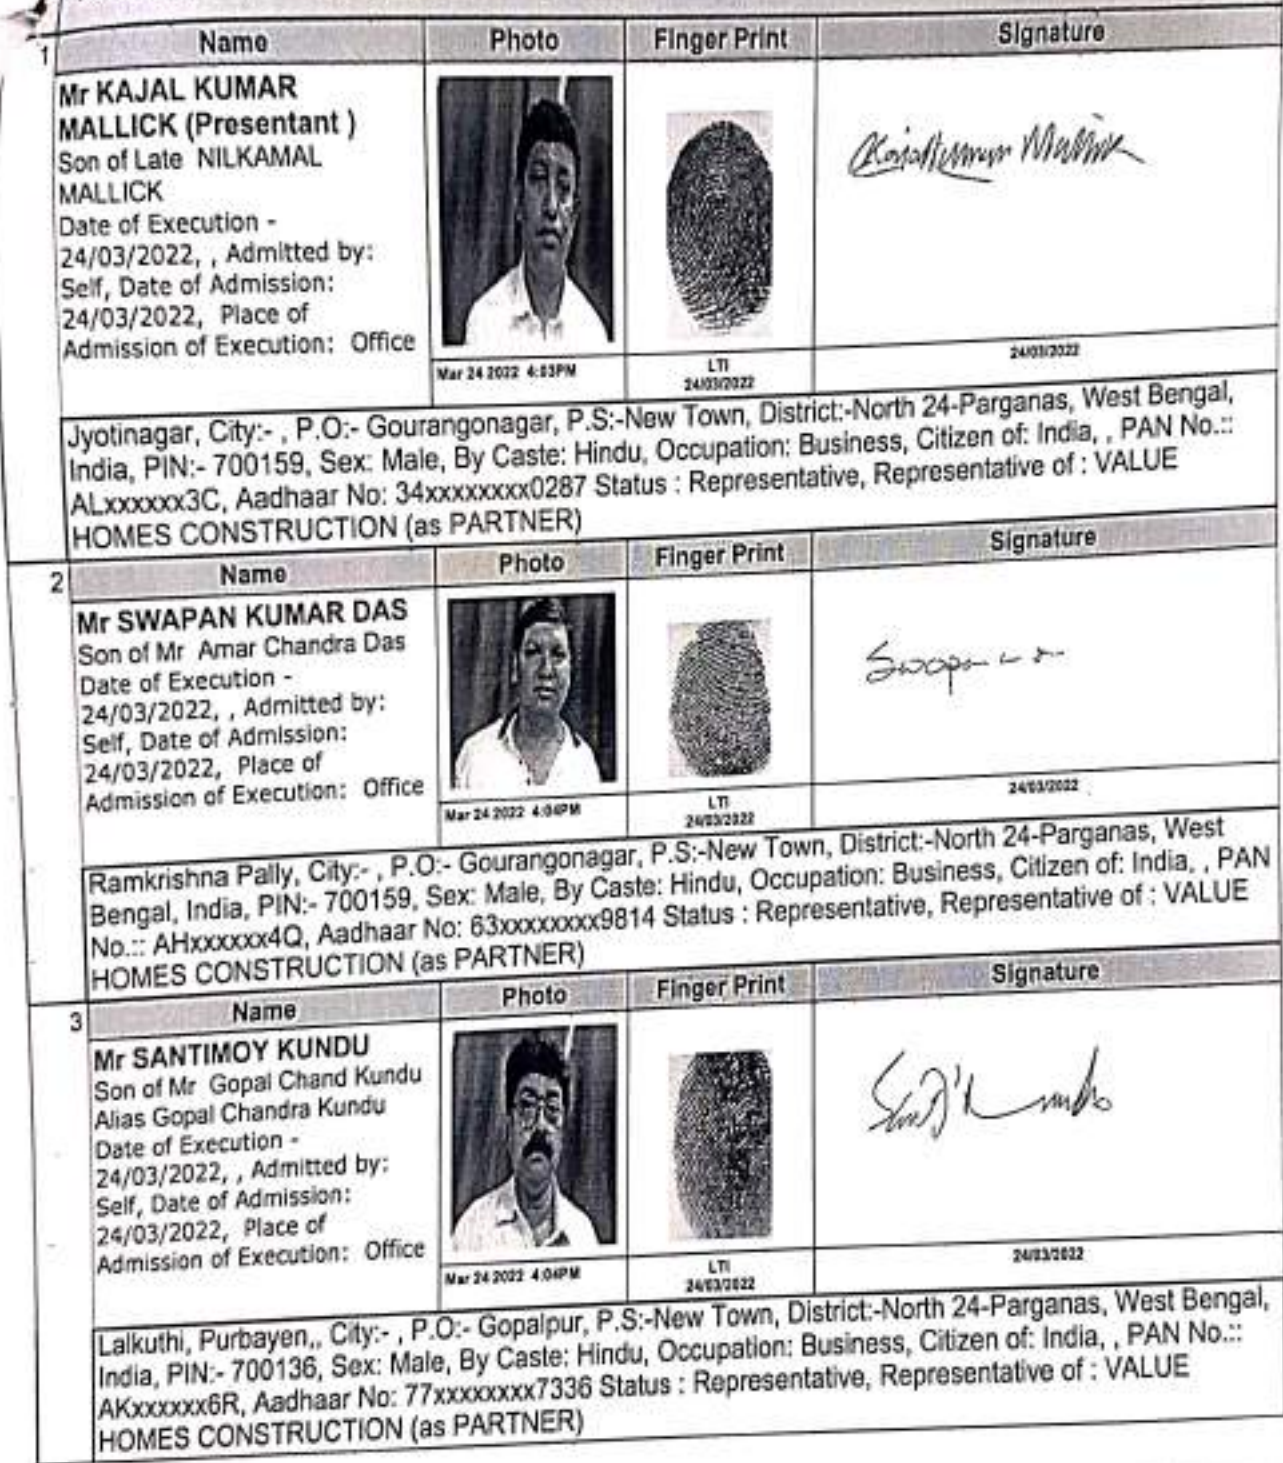 1
Name Photo Finger Print Signature
Mr KAJAL KUMAR
MALLICK (Presentant )
Son of Late NILKAMAL
MALLICK
Date of Execution -
24/03/2022, , Admitted by:
Self, Date of Admission:
24/03/2022, Place of
Admission of Execution: Office
Mar 24 2022 4:03PM
LTI
24/03/2022
24/03/2022
Jyotinagar, City:- , P.O:- Gourangonagar, P.S:-New Town, District:-North 24-Parganas, West Bengal,
India, PIN:- 700159, Sex: Male, By Caste: Hindu, Occupation: Business, Citizen of: India, , PAN No.::
ALxxxxxx3C, Aadhaar No: 34xxxxxxxx0287 Status : Representative, Representative of : VALUE
HOMES CONSTRUCTION (as PARTNER)
2
Name Photo Finger Print Signature
Mr SWAPAN KUMAR DAS
Son of Mr Amar Chandra Das
Date of Execution -
24/03/2022, , Admitted by:
Self, Date of Admission:
24/03/2022, Place of
Admission of Execution: Office
Mar 24 2022 4:04PM
LTI
24/03/2022
24/03/2022
Ramkrishna Pally, City:- , P.O:- Gourangonagar, P.S:-New Town, District:-North 24-Parganas, West
Bengal, India, PIN:- 700159, Sex: Male, By Caste: Hindu, Occupation: Business, Citizen of: India, , PAN
No.:: AHxxxxxx4Q, Aadhaar No: 63xxxxxxxx9814 Status : Representative, Representative of : VALUE
HOMES CONSTRUCTION (as PARTNER)
3
Name Photo Finger Print Signature
Mr SANTIMOY KUNDU
Son of Mr Gopal Chand Kundu
Alias Gopal Chandra Kundu
Date of Execution -
24/03/2022, , Admitted by:
Self, Date of Admission:
24/03/2022, Place of
Admission of Execution: Office
Mar 24 2022 4:04PM
LTI
24/03/2022
24/03/2022
Lalkuthi, Purbayen,, City:- , P.O:- Gopalpur, P.S:-New Town, District:-North 24-Parganas, West Bengal,
India, PIN:- 700136, Sex: Male, By Caste: Hindu, Occupation: Business, Citizen of: India, , PAN No.::
AKxxxxxx6R, Aadhaar No: 77xxxxxxxx7336 Status : Representative, Representative of : VALUE
HOMES CONSTRUCTION (as PARTNER)